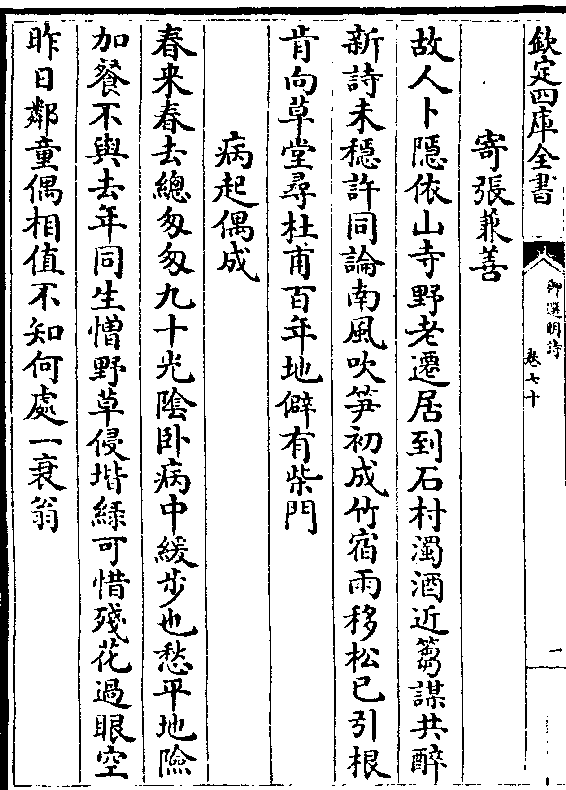 欽定四庫全書
御選明詩
卷七十
一
寄張蒹善
故人卜隠依山寺野老遷居到石村濁酒近蒭謀共醉
新詩未穏許同論南風吹笋初成竹宿雨移松已引根
肯向草堂尋杜甫百年地僻有柴門
病起偶成
春来春去總匆匆九十光陰卧病中緩步也愁平地險
加餐不與去年同生憎野草侵堦緑可惜殘花過眼空
昨日鄰童偶相值不知何處一衰翁